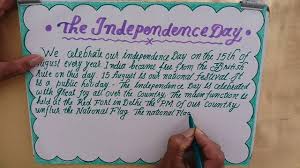 The Independence Day
We celebrate our Independence Day on the 15th of
august every year. India became free from the British
rule on this day. 15 August is our national festival. It
is a public holiday. The Independence Day is celebrated
with great joy all over the country. The main function is
held at the Red Fort in Delhi. the PM of our country
unfurls the National Flag. The national Flag